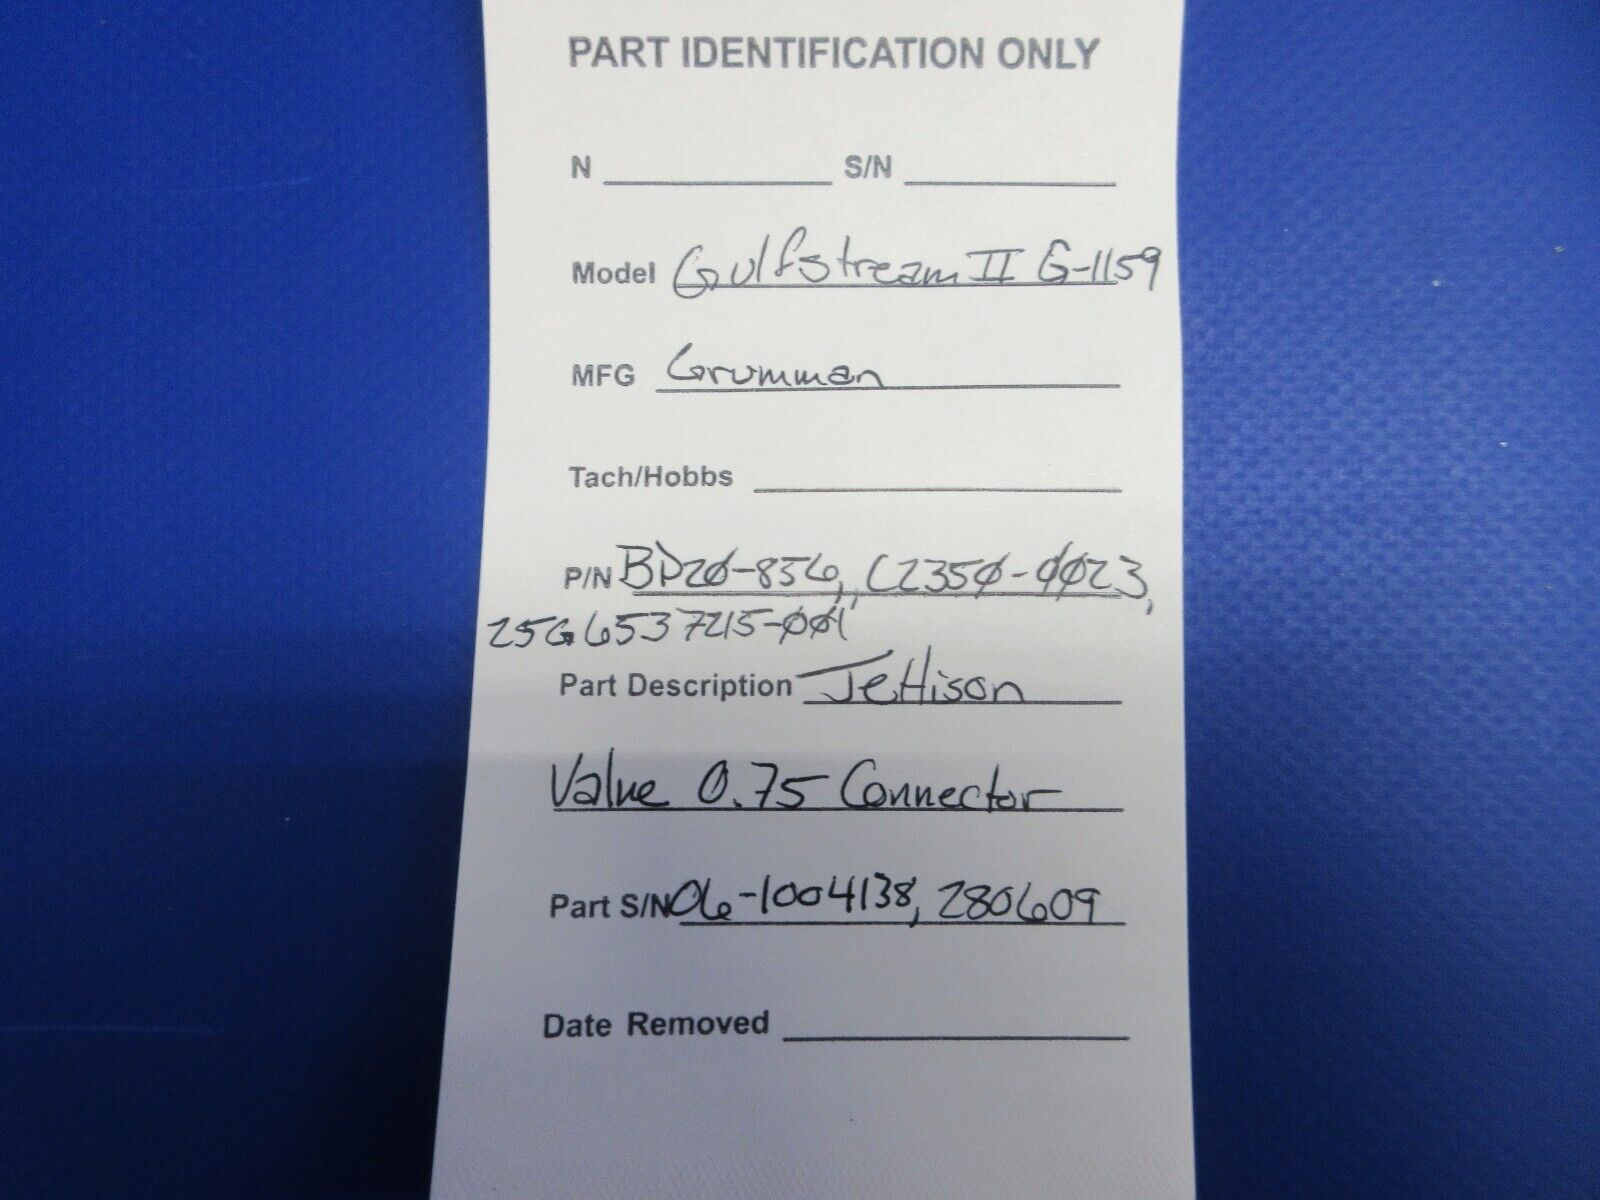 PART IDENTIFICATION ONLY
N S/N
Model Gulfstream II G-1159
MFG Grumman
Tach/Hobbs
P/N BD20-836, C2350-0023,
25G6537215-001
Part Description Jettison
Valve 0.75 Connector
Part S/N 06-1004138, 280609
Date Removed